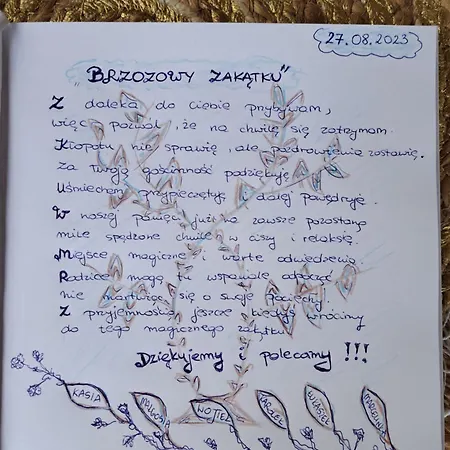 27.08.2023
"BRZOZOWY ZAKĄTKU"
Z daleka do Ciebie przybywam,
więc pozwól, że na chwilę się zatrzymam.
Kłopotu nie sprawię, ale pozdrowienia zostawię.
Za Twoją gościnność podziękuję
Uśmiechem przypieczętuję i dalej powędruję.
W naszej pamięci już na zawsze pozostaną
miłe spędzone chwile w ciszy i relaksie.
Miejsce magiczne i warte odwiedzenia.
Rodzice mogą tu wspaniale odpocząć
nie martwiąc się o swoje pociechy.
Z przyjemnością jeszcze kiedyś wrócimy
do tego magicznego zakątku.
Dziękujemy i polecamy !!!
KASIA
MAŁGOSIA
WOJTEK